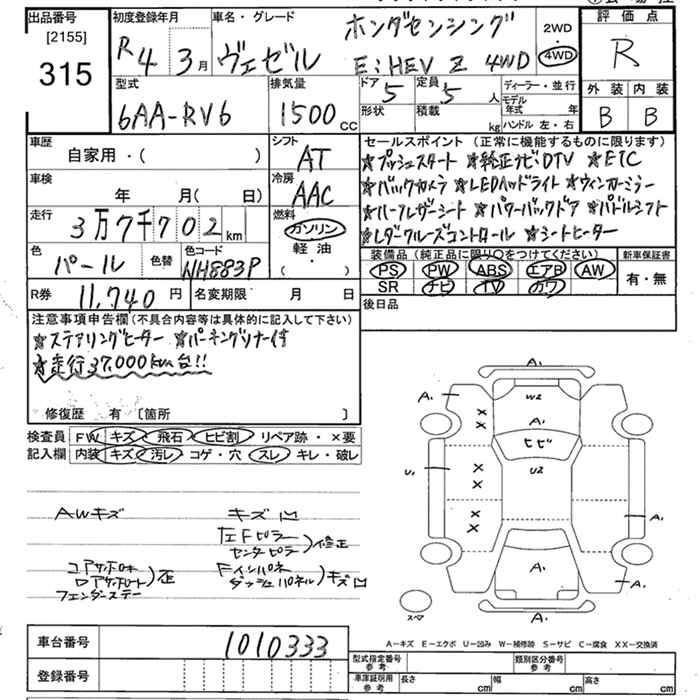 出品番号
[2155]
315
初度登録年月
R4 3月
車名・グレード
ホンダセンシング
ヴェゼル E:HEV Z 4WD
2WD
・
4WD
評価点
R
外装 内装
B B
型式
6AA-RV6
排気量
1500 cc
ドア 5
定員 5 人
形状
積載 kg
ディーラー・並行
モデル年式 年
ハンドル 左・右
車歴
自家用・( )
シフト
AT
車検
年 月( 日)
冷房
AAC
走行
3万7千702 km
燃料
ガソリン
軽・油
・( )
色
パール
色替
色コード
NH883P
セールスポイント(正常に機能するものに限ります)
★プッシュスタート ★純正ナビDTV ★ETC
★バックカメラ ★LEDヘッドライト ★ウィンカーミラー
★ハーフレザーシート ★パワーバックドア ★パドルシフト
★レダクルーズコントロール ★シートヒーター
装備品(純正品に限り〇をつけてください)
PS PW ABS エアB AW
SR ナビ TV カワ
新車保証書
有・無
後日品
R券 11,740 円
名変期限 月 日
注意事項申告欄(不具合内容等は具体的に記入して下さい)
★ステアリングヒーター ★パーキングソナー付
★走行37,000km台!!
修復歴 有〔箇所 〕
検査員
記入欄
FW キズ・飛石・ヒビ割 リペア跡・×要
内装 キズ・汚レ・コゲ・穴・スレ・キレ・破レ
AWキズ
キズ凹
左Fピラー
センターピラ
)修正
コアサポロネ
ロアサポート
)歪
フェンダーステー
Fインパネ
ダッシュパネル
)キズ凹
A1
A1
W2
A1
ヒビ
U2
U1
A1
A1
A1
A1
スペア
A-キズ E-エクボ U-凹み W-補修跡 S-サビ C-腐食 XX-交換済
車台番号
1010333
登録番号
型式指定番号
参考
類別区分番号
参考
車庫証明用
参考
長さ cm
幅 cm
高さ cm